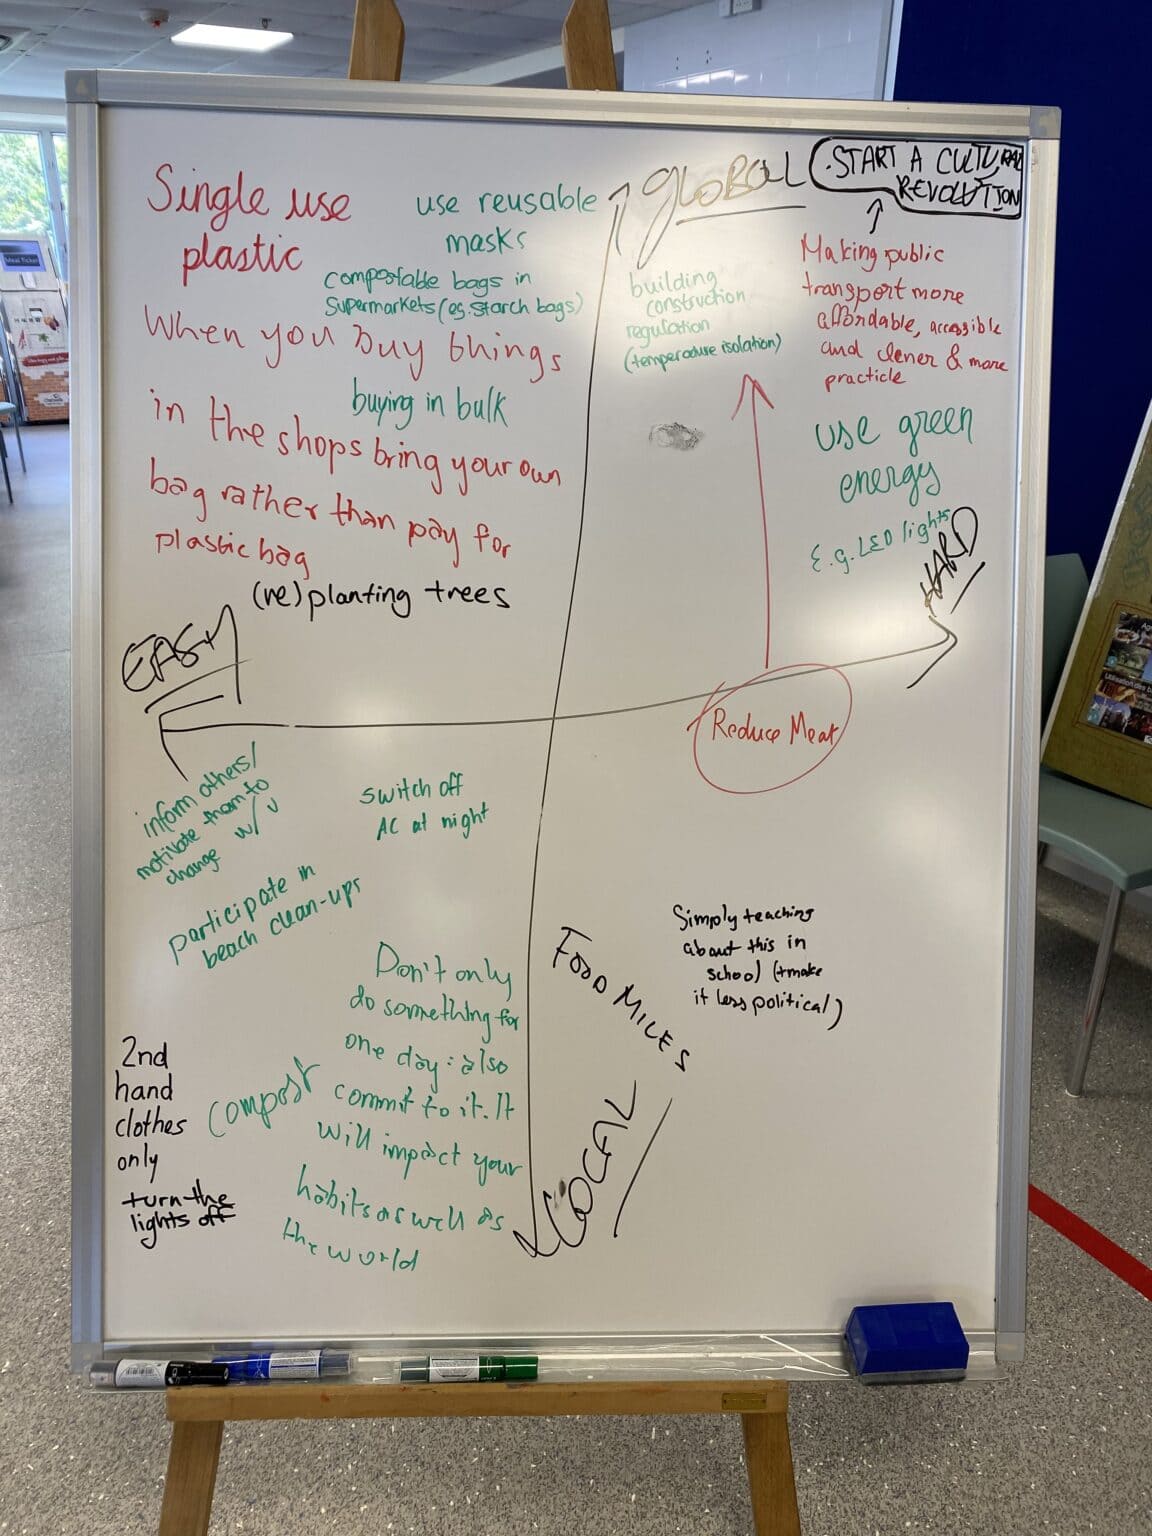 Single use
plastic
use reusable
masks
compostable bags in
supermarkets (eg. starch bags)
When you buy things
buying in bulk
in the shops bring your own
bag rather than pay for
plastic bag
(re)planting trees
GLOBAL
.START A CULTURAL
REVOLUTION
Making public
transport more
affordable, accessible
and clener & more
practicle
building
construction
regulation
(temperature isolation)
use green
energy
E.g. LED lights
HARD
EASY
Reduce Meat
inform others/
motivate them to
change w/ u
switch off
AC at night
participate in
beach clean-ups
Don't only
do something for
one day: also
commit to it. It
will impact your
habits as well as
the world
compost
2nd
hand
clothes
only
turn the
lights off
FOOD MILES
LOCAL
Simply teaching
about this in
school (+make
it less political)
Meal Ticket